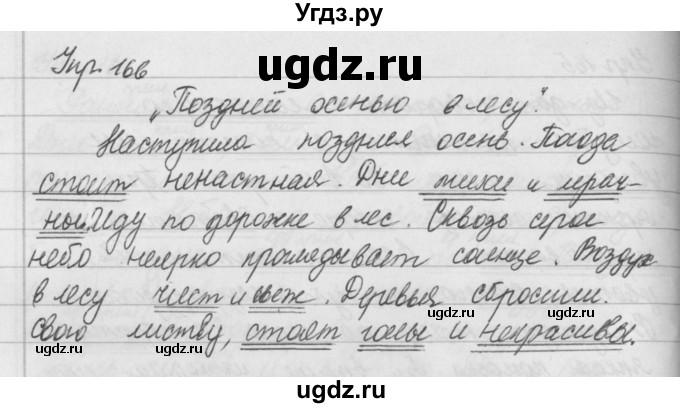 Угдз.ру
Упр. 166
ugdz.ru
„Поздней осенью в лесу".
Наступила поздняя осень. Погода
стоит ненастная. Дни тихи и мрач-
ны. Иду по дорожке в лес. Сквозь серое
небо неярко проглядывает солнце. Воздух
в лесу чист и свеж. Деревья сбросили
свою листву, стоят голы и некрасивы.
ugdz.ru
ugdz.ru
ugdz.ru
ugdz.ru
ugdz.ru
ugdz.ru
ugdz.ru
ugdz.ru